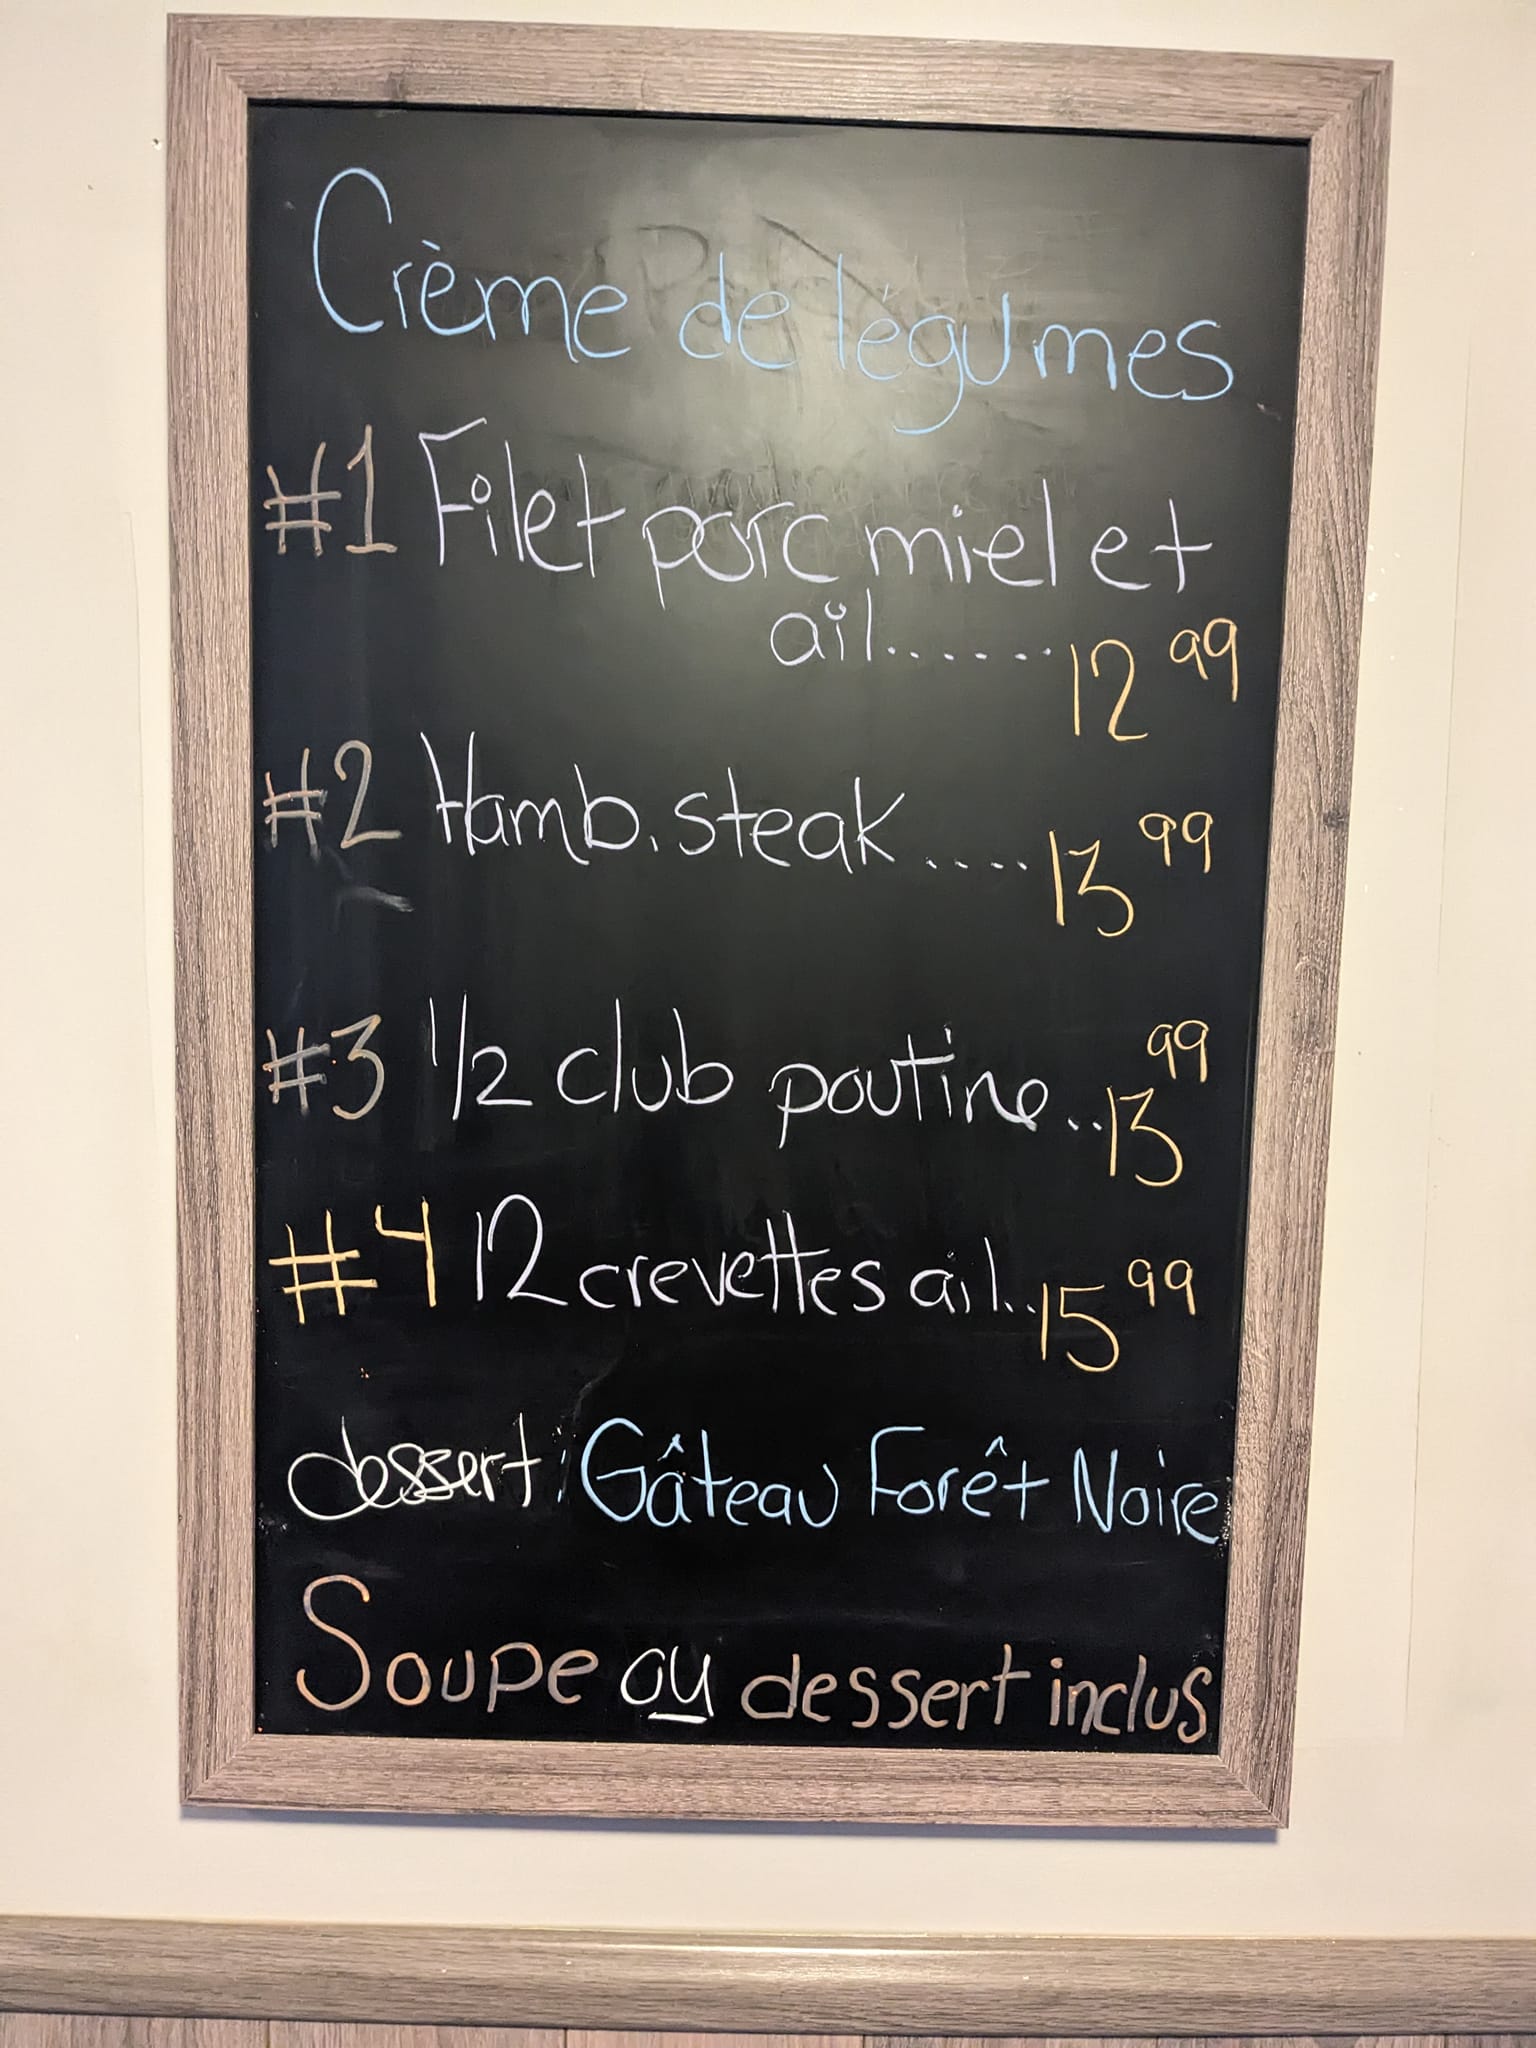 Crème de légumes
#1 Filet porc miel et
ail....... 12 99
#2 Hamb. steak .... 13 99
#3 1/2 club poutine .. 13 99
#4 12 crevettes ail.. 15 99
dessert : Gâteau Forêt Noire
Soupe ou dessert inclus